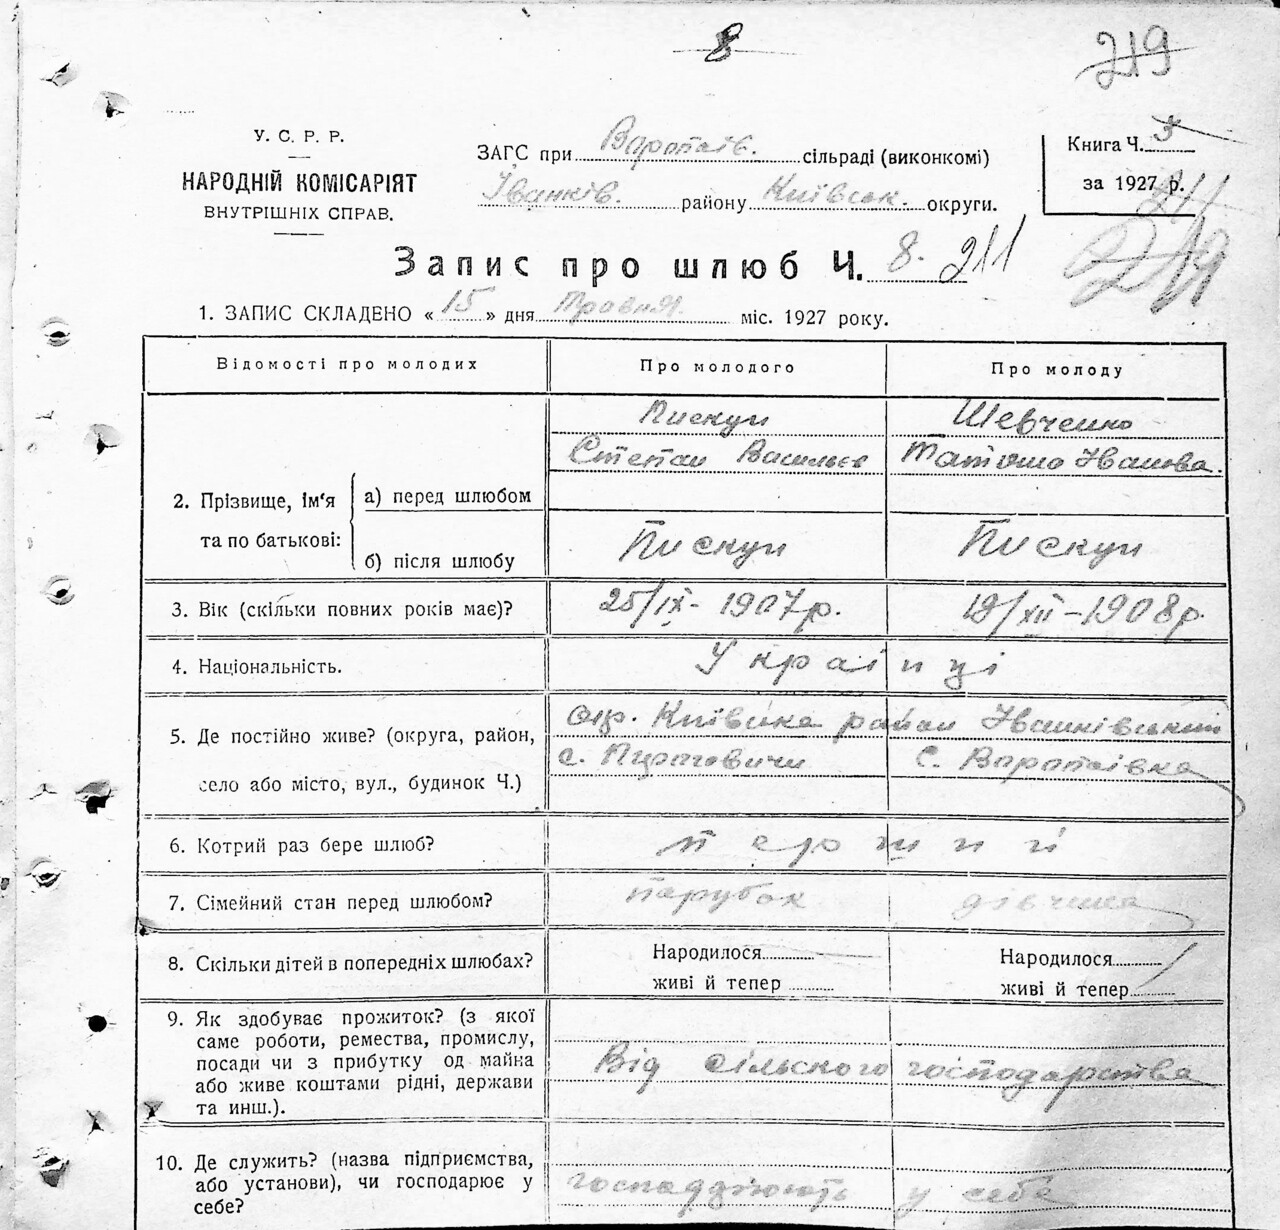 8
219
У. С. Р. Р.
НАРОДНІЙ КОМІСАРІЯТ
ВНУТРІШНІХ СПРАВ.
ЗАГС при Воропаїв. сільраді (виконкомі)
Іванків. району Київськ. округи.
Книга Ч. 3
за 1927 р.
211
219
Запис про шлюб Ч. 8. 211
1. ЗАПИС СКЛАДЕНО « 15 » дня Травня міс. 1927 року.
Відомості про молодих Про молодого Про молоду
Пискун Шевченко
Степан Васильев Іванова.
2. Прізвище, ім'я та по батькові:
а) перед шлюбом
б) після шлюбу Пискун Пискун
3. Вік (скільки повних років має)? 25/IX - 1907 р. 19/XII - 1908 р.
4. Національність. Українці
5. Де постійно живе? (округа, район, окр. Київська район Іванківський
село або місто, вул., будинок Ч.) с. с. Воропаївка
6. Котрий раз бере шлюб? перший
7. Сімейний стан перед шлюбом? парубок дівчина
8. Скільки дітей в попередніх шлюбах? Народилося Народилося
живі й тепер живі й тепер
9. Як здобуває прожиток? (з якої
саме роботи, ремества, промислу,
посади чи з прибутку од майна Від сільского господарства
або живе коштами рідні, держави
та инш.).
10. Де служить? (назва підприємства,
або установи), чи господарює у у себе
себе?